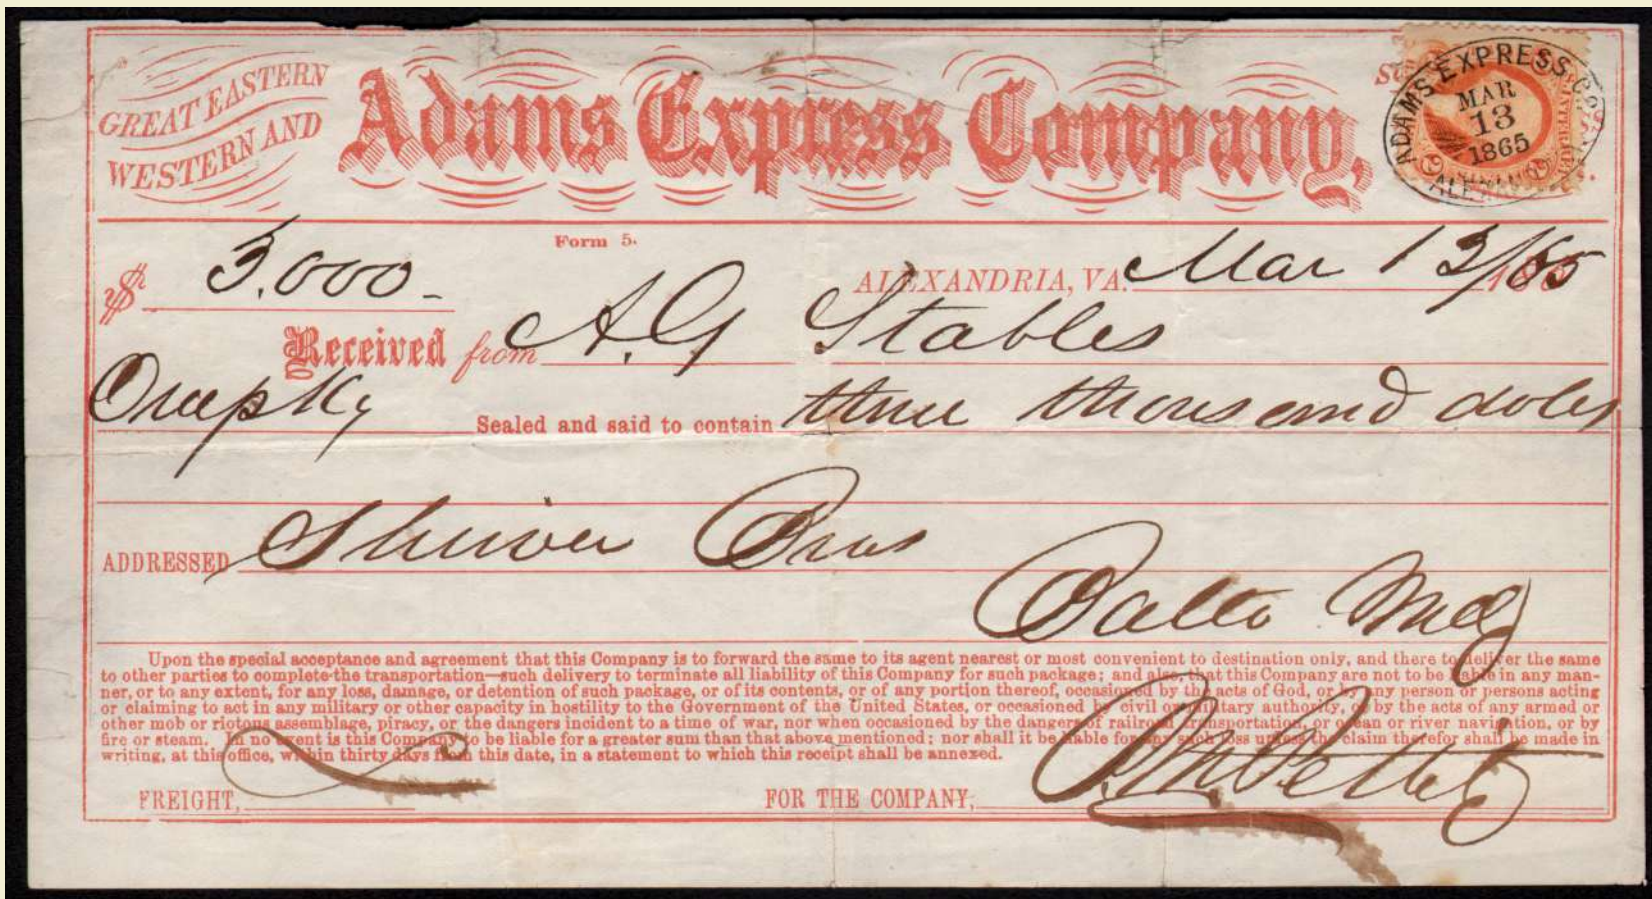 GREAT EASTERN
WESTERN AND
Adams Express Company,
ADAMS EXPRESS CO.
MAR
13
1865
Form 5.
$ 3,000-
ALEXANDRIA, VA. Mar 13/65 186
Received from A.G Stables
One pkg Sealed and said to contain three thousand dolls
ADDRESSED Shriver Bros
Balto Md
Upon the special acceptance and agreement that this Company is to forward the same to its agent nearest or most convenient to destination only, and there to deliver the same
to other parties to complete the transportation—such delivery to terminate all liability of this Company for such package; and also, that this Company are not to be liable in any man-
ner, or to any extent, for any loss, damage, or detention of such package, or of its contents, or of any portion thereof, occasioned by the acts of God, or by any person or persons acting
or claiming to act in any military or other capacity in hostility to the Government of the United States, or occasioned by civil or military authority, or by the acts of any armed or
other mob or riotous assemblage, piracy, or the dangers incident to a time of war, nor when occasioned by the dangers of railroad transportation, or ocean or river navigation, or by
fire or steam. In no event is this Company to be liable for a greater sum than that above mentioned; nor shall it be liable for any such loss unless the claim therefor shall be made in
writing, at this office, within thirty days from this date, in a statement to which this receipt shall be annexed.
FREIGHT,
FOR THE COMPANY,